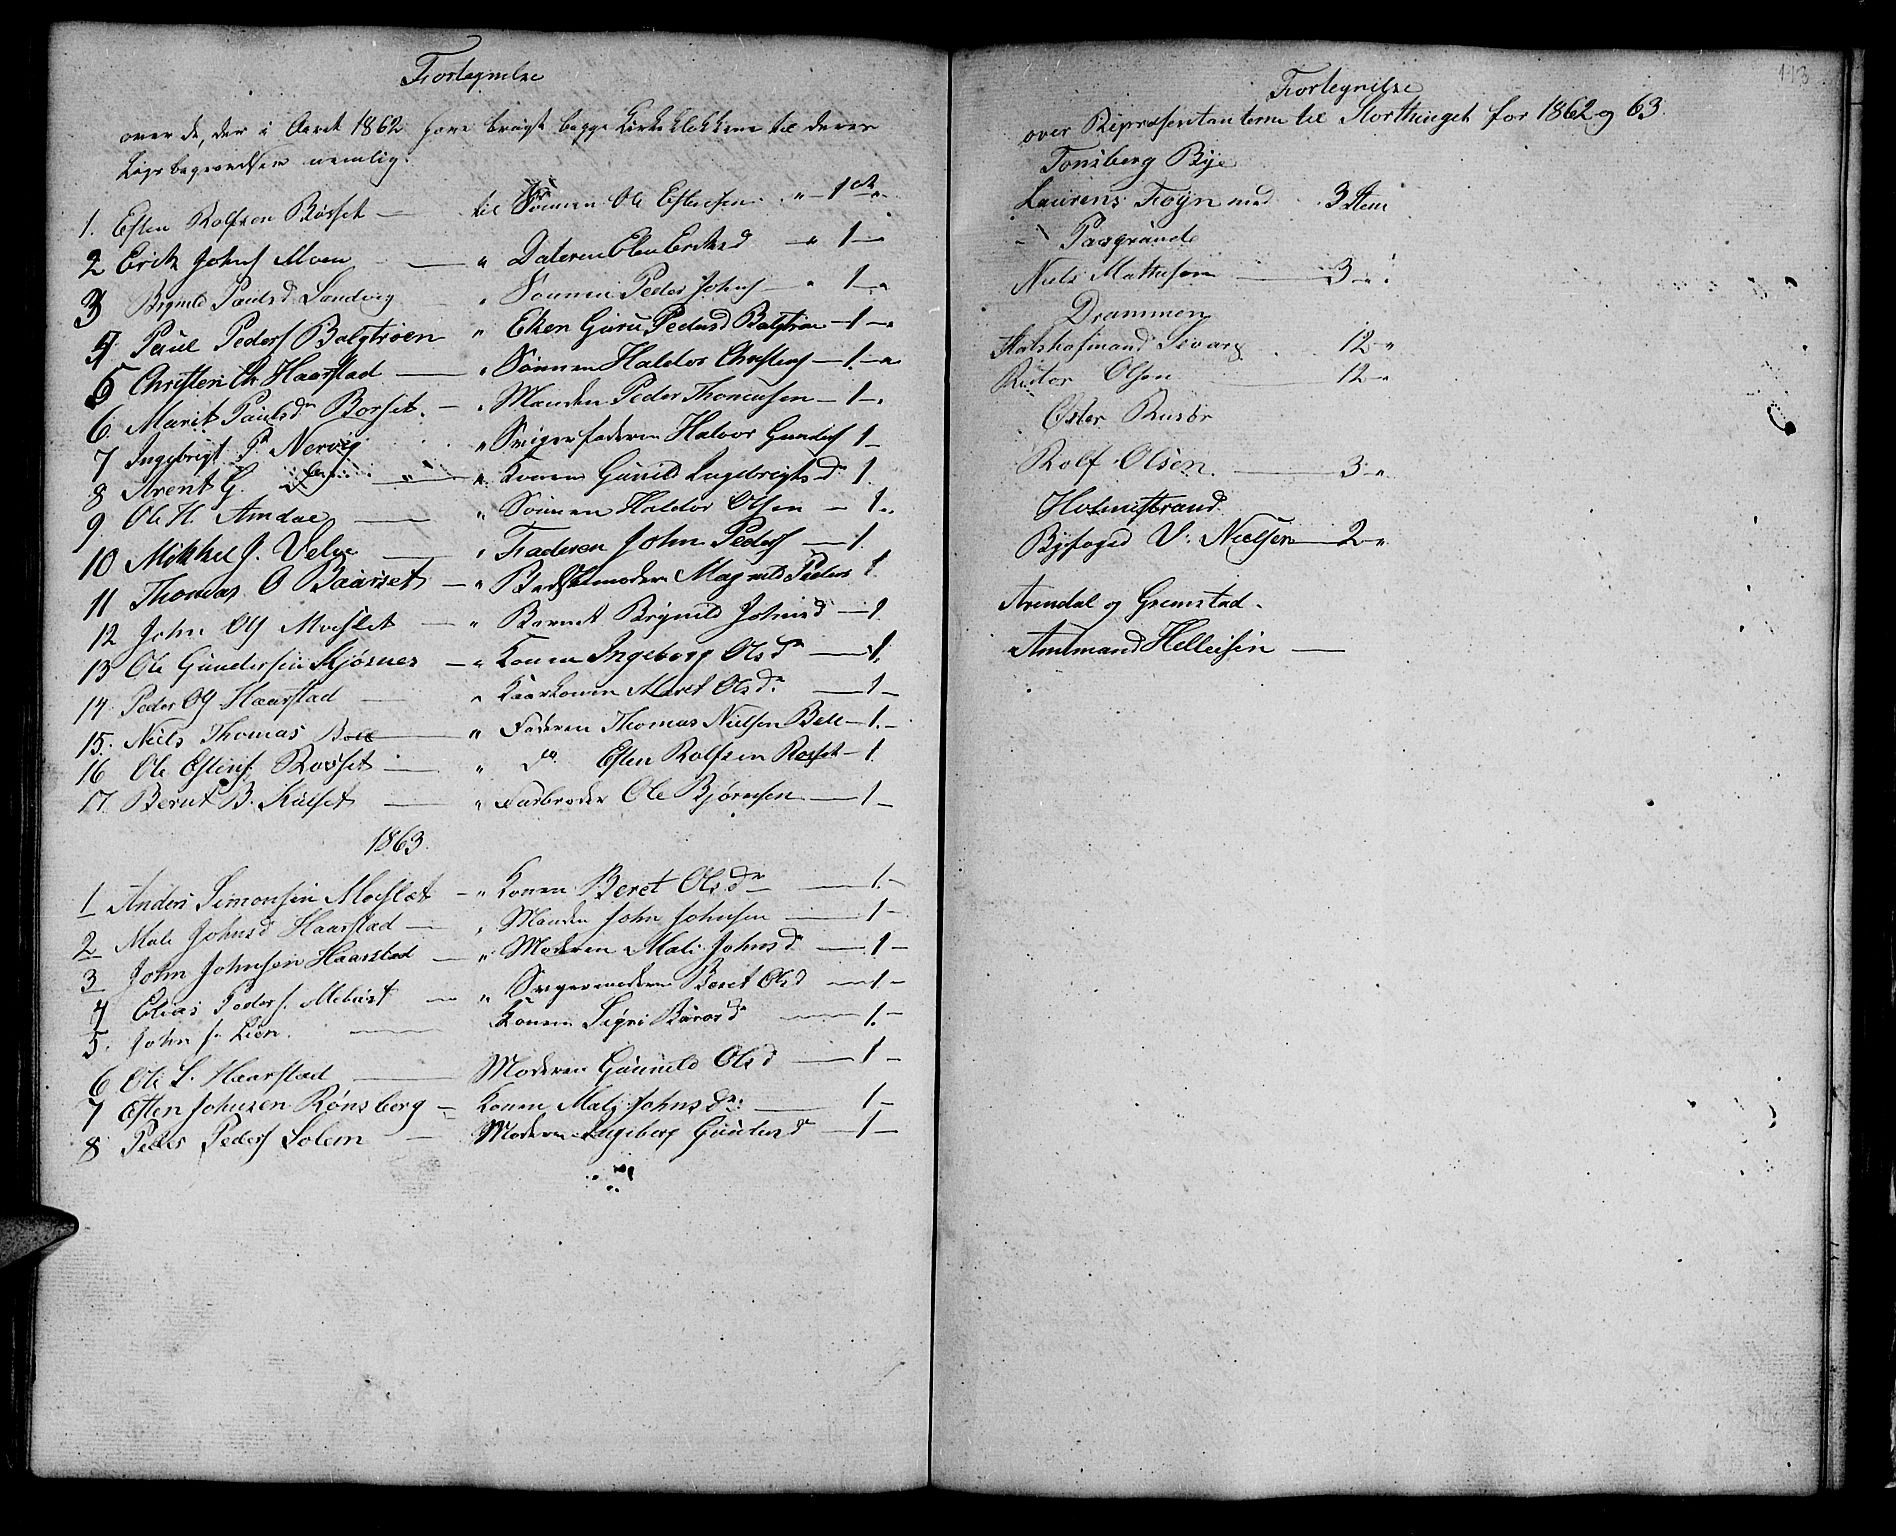 Fortegnelse
over de, der i Aaret 1862 have brugt begge Kirkeklokkerne til deres
Ligsbegravelser nemlig:
1. Esten Rolfsen Røsset — til Sønnen Ole Estensen " — 1 —
2 Erik Johns Moen — " Dateren Elen Eriksd — " 1 —
3 Brynild Paulsd Sandvig " Sønnen Peder Johns — " 1 — "
4 Paul Peders Balgtrøen " Eken Guru Pedersd Balgtrøen — 1 — "
5 Christen Ch Haarstad — " Sønnen Haldor Christens — 1 — "
6. Marit Paulsdr Borset. — " Manden Peder Thomesen — 1 — "
7 Ingebrigt P. Nervig " Svigerfaderen Halvor Gunders 1 —
8 Arent G. — " Konen Gunild Ingebrigtsdr 1.
9. Ole H. Amdal — " Sønnen Haldor Olsen — 1 "
10 Mikkel J. Velve — " Faderen John Peders — 1.
11 Thomas O Baarset — " Bedstemoderen Magnild Peders 1.
12 John Ols Moeslet — " Barnet Brynild Johnsd — 1
13 Ole Gundersen Kjøsnes — " Konen Ingeborg Olsdr — 1.
14. Peder Ols Haarstad — " Kaarkonen Maret Olsdr — 1 —
15. Niels Thomas Bell " Faderen Thomas Nielsen Bell — 1. —
16 Ole Estens Røsset — " do Esten Rolfsen Røsset — 1.
17. Bernt B. Kulset — " Farbroder Ole Bjørnsen — 1 —
1863.
1 Anders Simonsen Moeslet — " Konen Beret Olsdr — 1. —
2 Mali Johnsd Haarstad — " Manden John Johnsen — 1 —
3 John Johnsen Haarstad — " Moderen Mali Johnsdr — 1 —
4 Elias Peders. Mebust — " Svigermoderen Beret Olsd — 1 —
5. John J. Lien. — Konen Sigri Baarsdr — 1. —
6 Ole S. Haarstad — Moderen Gunnild Olsd — 1 —
7 Esten Johnsen Rønsberg — Konen Mali Johnsdr. — 1 —
8 Peder Peders Solem — Moderen Ingeborg Gundersd — 1 —
113
Fortegnelse
over Repræsentanterne til Storthinget for 1862 og 63.
Tønsberg Bye
Laurens Foyn med 3 Stem
" Porsgrund
Niels Mathisen — 3 — "
Drammen
Statshofmand Sivarg 12 "
Rektor Olsen — 12 — "
Øster Riisør
Rolf Olsen. — 3 — "
Holmestrand
Byfoged V. Nielsen — 2 — "
Arendal og Grimstad.
Amtmand Helliesen —